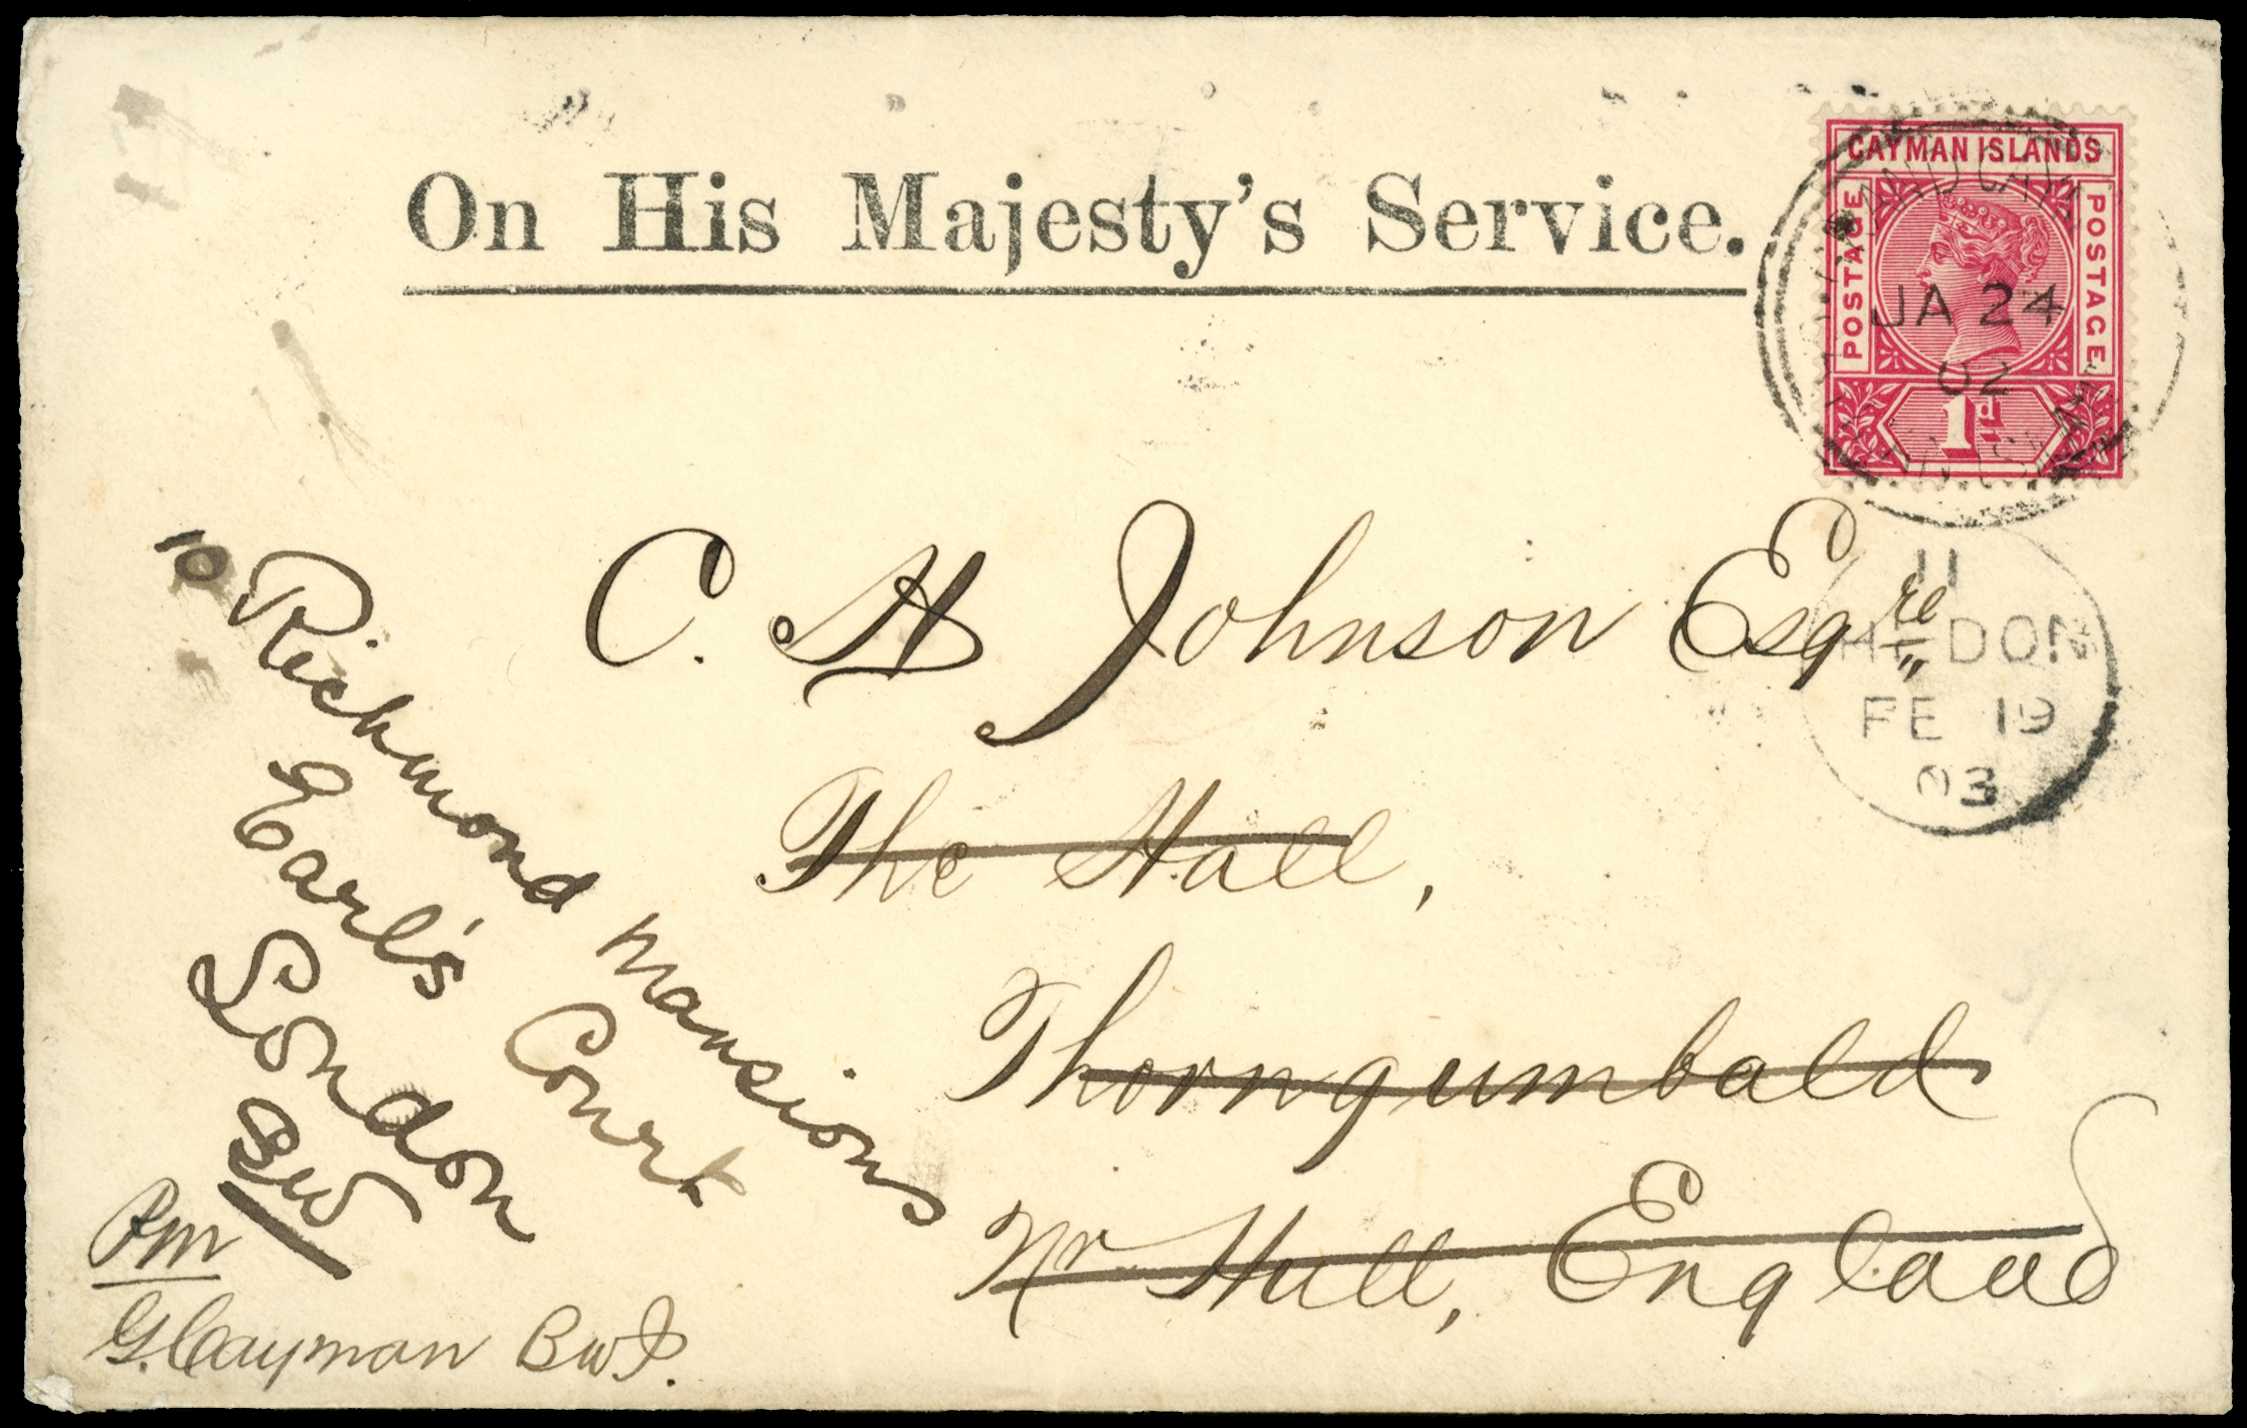 On His Majesty's Service.
CAYMAN ISLANDS
POSTAGE
POSTAGE
1d
JA 24
02
C. H Johnson Esqre
11
HEDON
FE 19
03
The Hall,
Thorngumbald
Nr Hull, England
10 Richmond Mansions
Earl's Court
London
SW
PM
G. Cayman BWI.